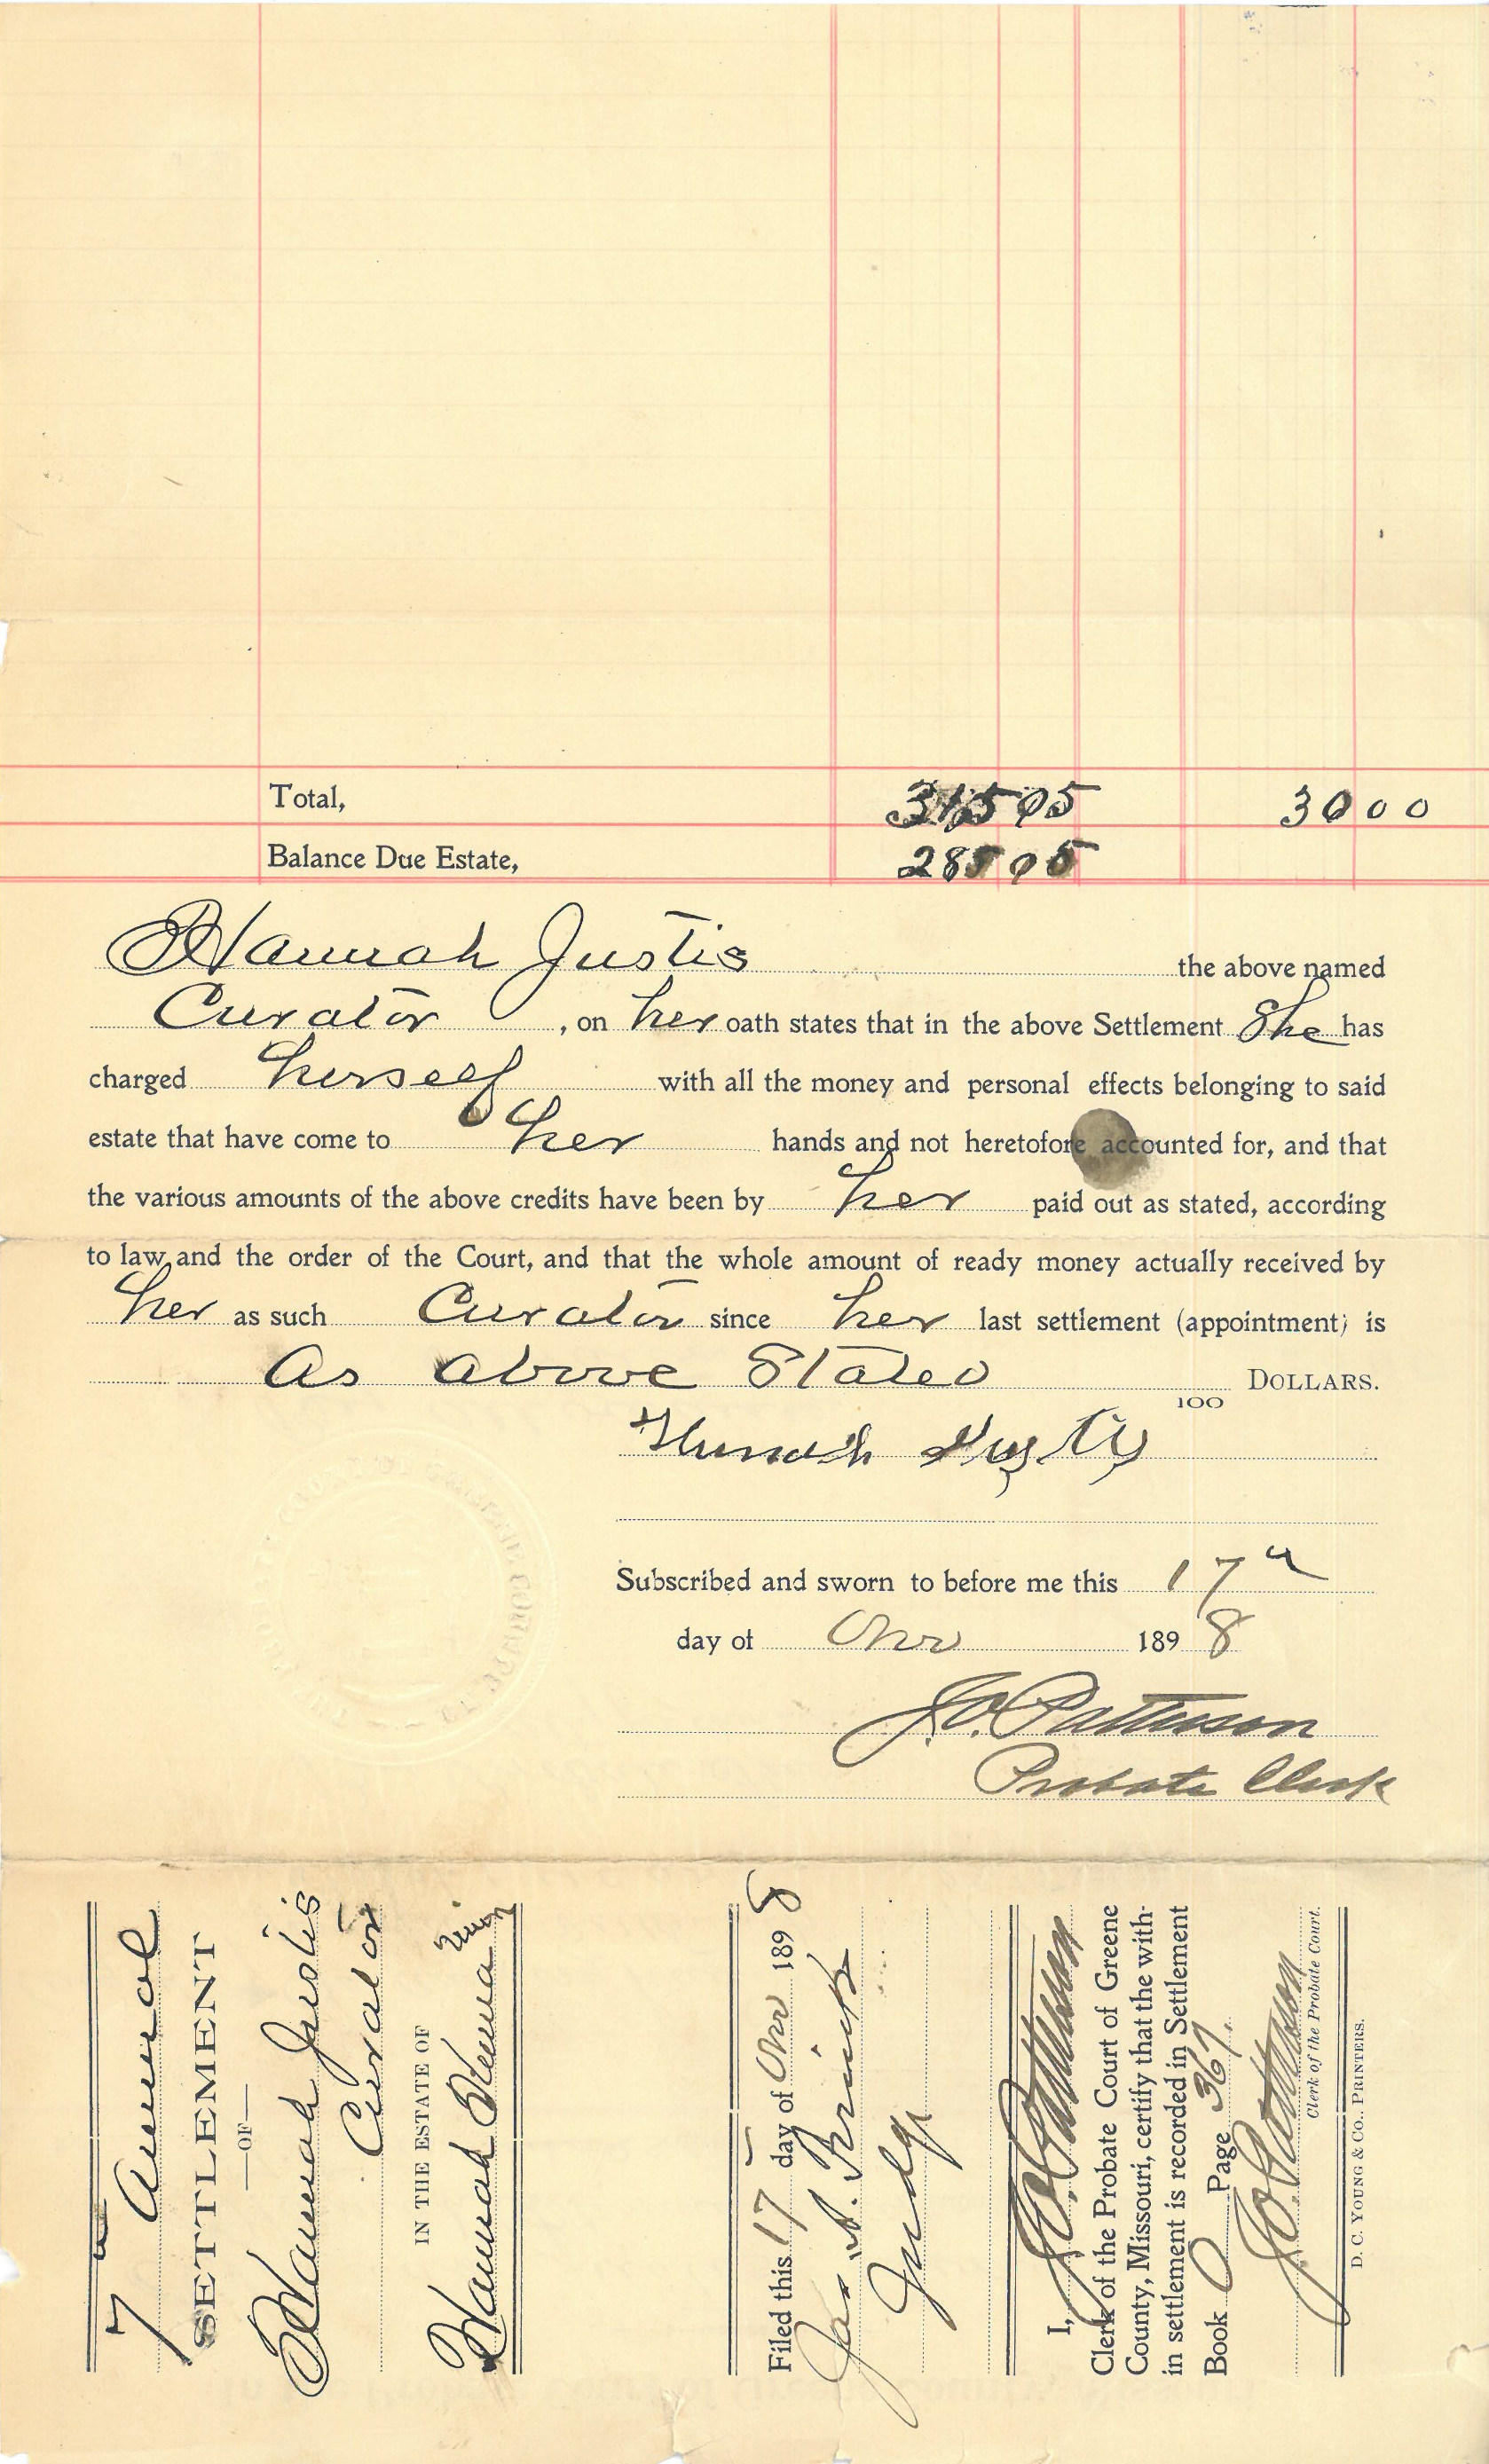 Total, 315 05 30 00
Balance Due Estate, 285 05
Hannah Justis the above named
Curator, on her oath states that in the above Settlement She has
charged herself with all the money and personal effects belonging to said
estate that have come to her hands and not heretofore accounted for, and that
the various amounts of the above credits have been by her paid out as stated, according
to law and the order of the Court, and that the whole amount of ready money actually received by
her as such Curator since her last settlement (appointment) is
As above Stated DOLLARS.
100
Subscribed and sworn to before me this 17"
day of Nov 1898
J.O. Patterson
Probate Clerk
7" Annual
SETTLEMENT
—OF—
Hannah Justis
Curator
IN THE ESTATE OF
Hannah
Filed this 17 day of Nov 1898
Jas. J. Brinck
Judge
I, J.O. Patterson
Clerk of the Probate Court of Greene
County, Missouri, certify that the with-
in settlement is recorded in Settlement
Book O Page 367.
J.O. Patterson
Clerk of the Probate Court.
D. C. YOUNG & CO., PRINTERS.